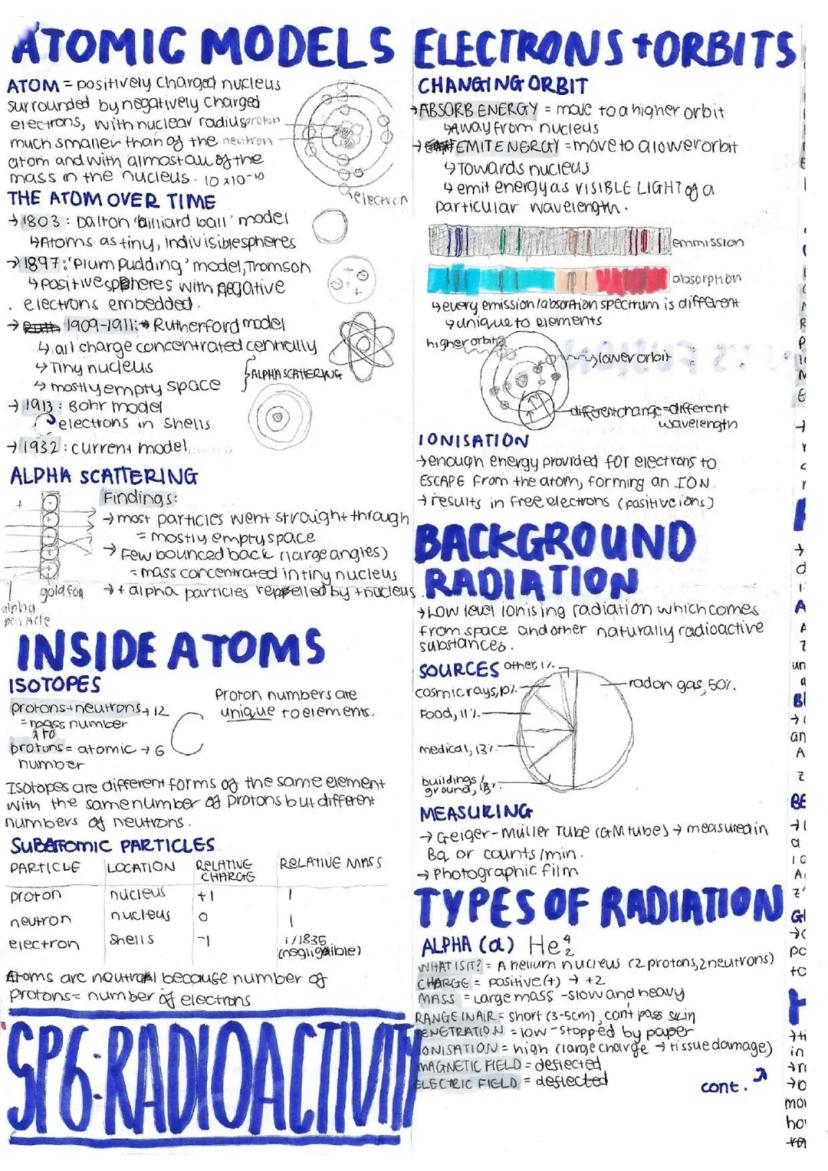 ATOMIC MODELS
ATOM = positively charged nucleus
surrounded by negatively charged
electrons, with nuclear radius
much smaller than of the
atom and with almost all of the
mass in the nucleus. 10 x10⁻¹⁰
proton
neutron
electron
THE ATOM OVER TIME
→ 1803: Dalton 'billiard ball' model
↳Atoms as tiny, indivisible spheres
→ 1897: 'Plum Pudding' model, Tromson
↳positive spheres with negative
electrons embedded.
→ 1909-1911: Rutherford model
↳ all charge concentrated centrally
↳ Tiny nucleus
↳ mostly empty space
ALPHA SCATTERING
→ 1913: Bohr model
electrons in shells
→ 1932: current model
ALPHA SCATTERING
Findings:
→ most particles went straight through
= mostly empty space
→ Few bounced back (large angles)
= mass concentrated in tiny nucleus
→ + alpha particles repelled by + nucleus.
gold foil
alpha
particle
INSIDE ATOMS
ISOTOPES
protons+neutrons → 12
= mass number
protons = atomic → 6
number
C
Proton numbers are
unique to elements.
Isotopes are different forms of the same element
with the same number of protons but different
numbers of neutrons.
SUBATOMIC PARTICLES
PARTICLE LOCATION RELATIVE CHARGE RELATIVE MASS
proton nucleus +1 1
neutron nucleus 0 1
electron shells -1 1/1835 (negligible)
Atoms are neutral because number of
protons = number of electrons
SP6: RADIOACTIVITY
ELECTRONS + ORBITS
CHANGING ORBIT
→ABSORB ENERGY = move to a higher orbit
↳Away from nucleus
→ EMIT ENERGY = move to a lower orbit
↳Towards nucleus
↳ emit energy as VISIBLE LIGHT of a
particular wavelength.
emmission
absorption
↳every emission/absorption spectrum is different
↳unique to elements
higher orbit
lower orbit
different change = different
wavelength
IONISATION
→enough energy provided for electrons to
ESCAPE from the atom, forming an ION.
→ results in free electrons (positive ions)
BACKGROUND
RADIATION
→Low level ionising radiation which comes
from space and other naturally radioactive
substances.
SOURCES
other, 1%
cosmic rays, 10%
food, 11%
medical, 13%
buildings/
ground,
radon gas, 50%
MEASURING
→ Geiger-Müller Tube (GM tubes) → measured in
Bq or counts/min.
→ Photographic film
TYPES OF RADIATION
ALPHA (α) He ⁴₂
WHAT IS IT? = A helium nucleus (2 protons, 2 neutrons)
CHARGE = positive (+) → +2
MASS = Large mass - slow and heavy
RANGE IN AIR = short (3-5cm), can't pass skin
PENETRATION = low - stopped by paper
IONISATION = high (large charge → tissue damage)
MAGNETIC FIELD = deflected
ELECTRIC FIELD = deflected
cont.